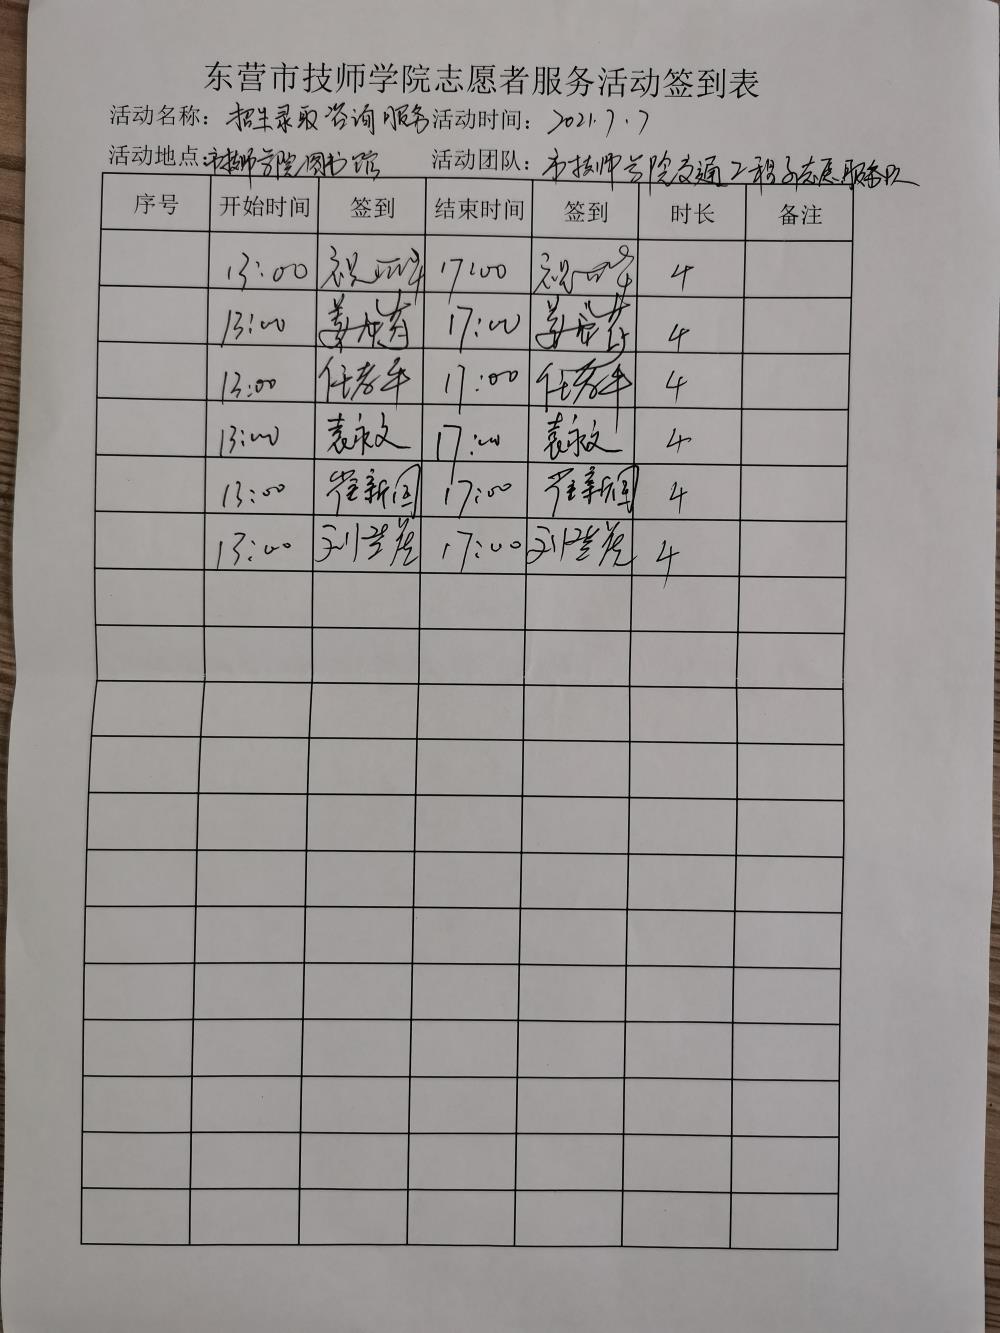 东营市技师学院志愿者服务活动签到表
活动名称：招生录取咨询服务 活动时间：2021.7.7
活动地点：市技师学院图书馆 活动团队：市技师学院交通工程系志愿服务队
序号 开始时间 签到 结束时间 签到 时长 备注
13:00 17:00 4
13:00 17:00 4
13:00 任孝平 17:00 任孝平 4
13:00 袁永文 17:00 袁永文 4
13:00 崔新国 17:00 崔新国 4
13:00 17:00 4